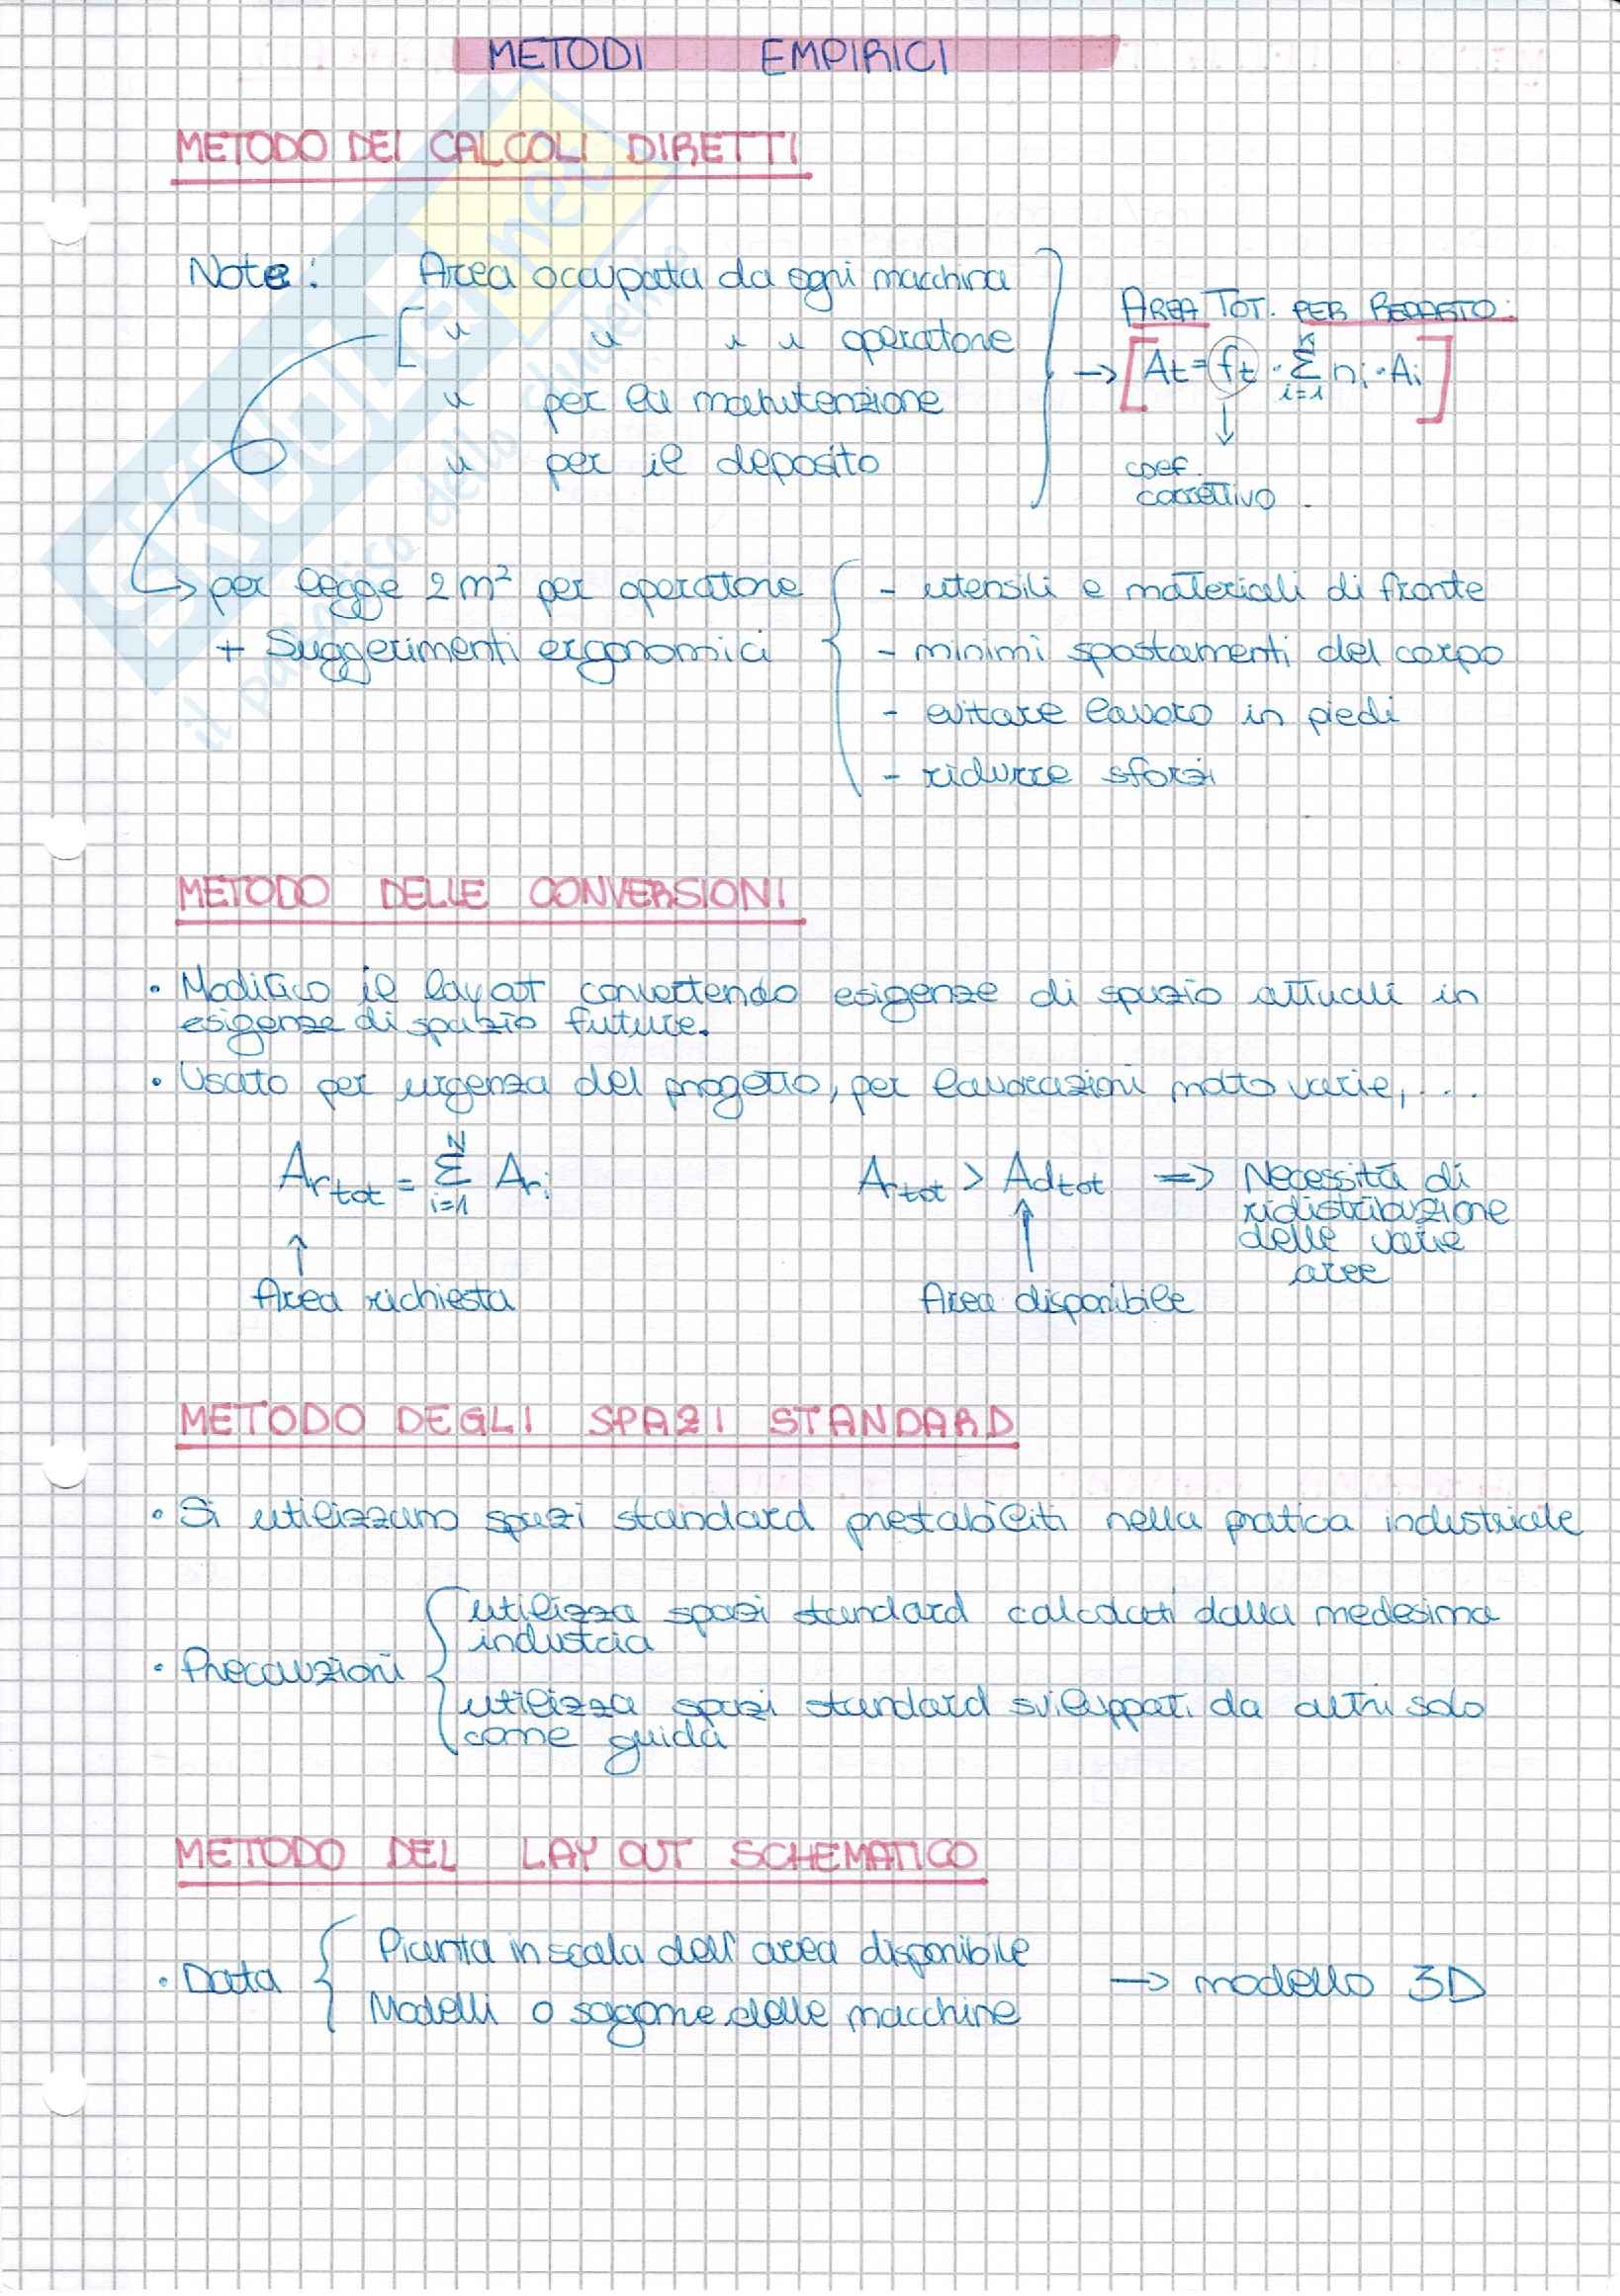 METODI EMPIRICI
METODO DEI CALCOLI DIRETTI
Note: Area occupata da ogni macchina
" " " " operatore
" per la manutenzione
" per il deposito
AREA TOT. PER REPARTO:
→ [At = ft · Σ ni · Ai]
k
i=1
↓
coef.
correttivo
→ per legge 2 m² per operatore
+ Suggerimenti ergonomici
- utensili e materiali di fronte
- minimi spostamenti del corpo
- evitare lavoro in piedi
- ridurre sforzi
METODO DELLE CONVERSIONI
• Modifico il layout convertendo esigenze di spazio attuali in
esigenze di spazio future.
• Usato per urgenza del progetto, per lavorazioni molto varie, ...
Ar tot = Σ Ari
N
i=1
↑
Area richiesta
Ar tot > Ad tot => Necessità di
ridistribuzione
delle varie
aree
↑
Area disponibile
METODO DEGLI SPAZI STANDARD
• Si utilizzano spazi standard prestabiliti nella pratica industriale
• Precauzioni
utilizza spazi standard calcolati dalla medesima
industria
utilizza spazi standard sviluppati da altri solo
come guida
METODO DEL LAY OUT SCHEMATICO
• Data
Pianta in scala dell'area disponibile
Modelli o sagome delle macchine
→ modello 3D
SKUOLA.net
il paradiso dello studente